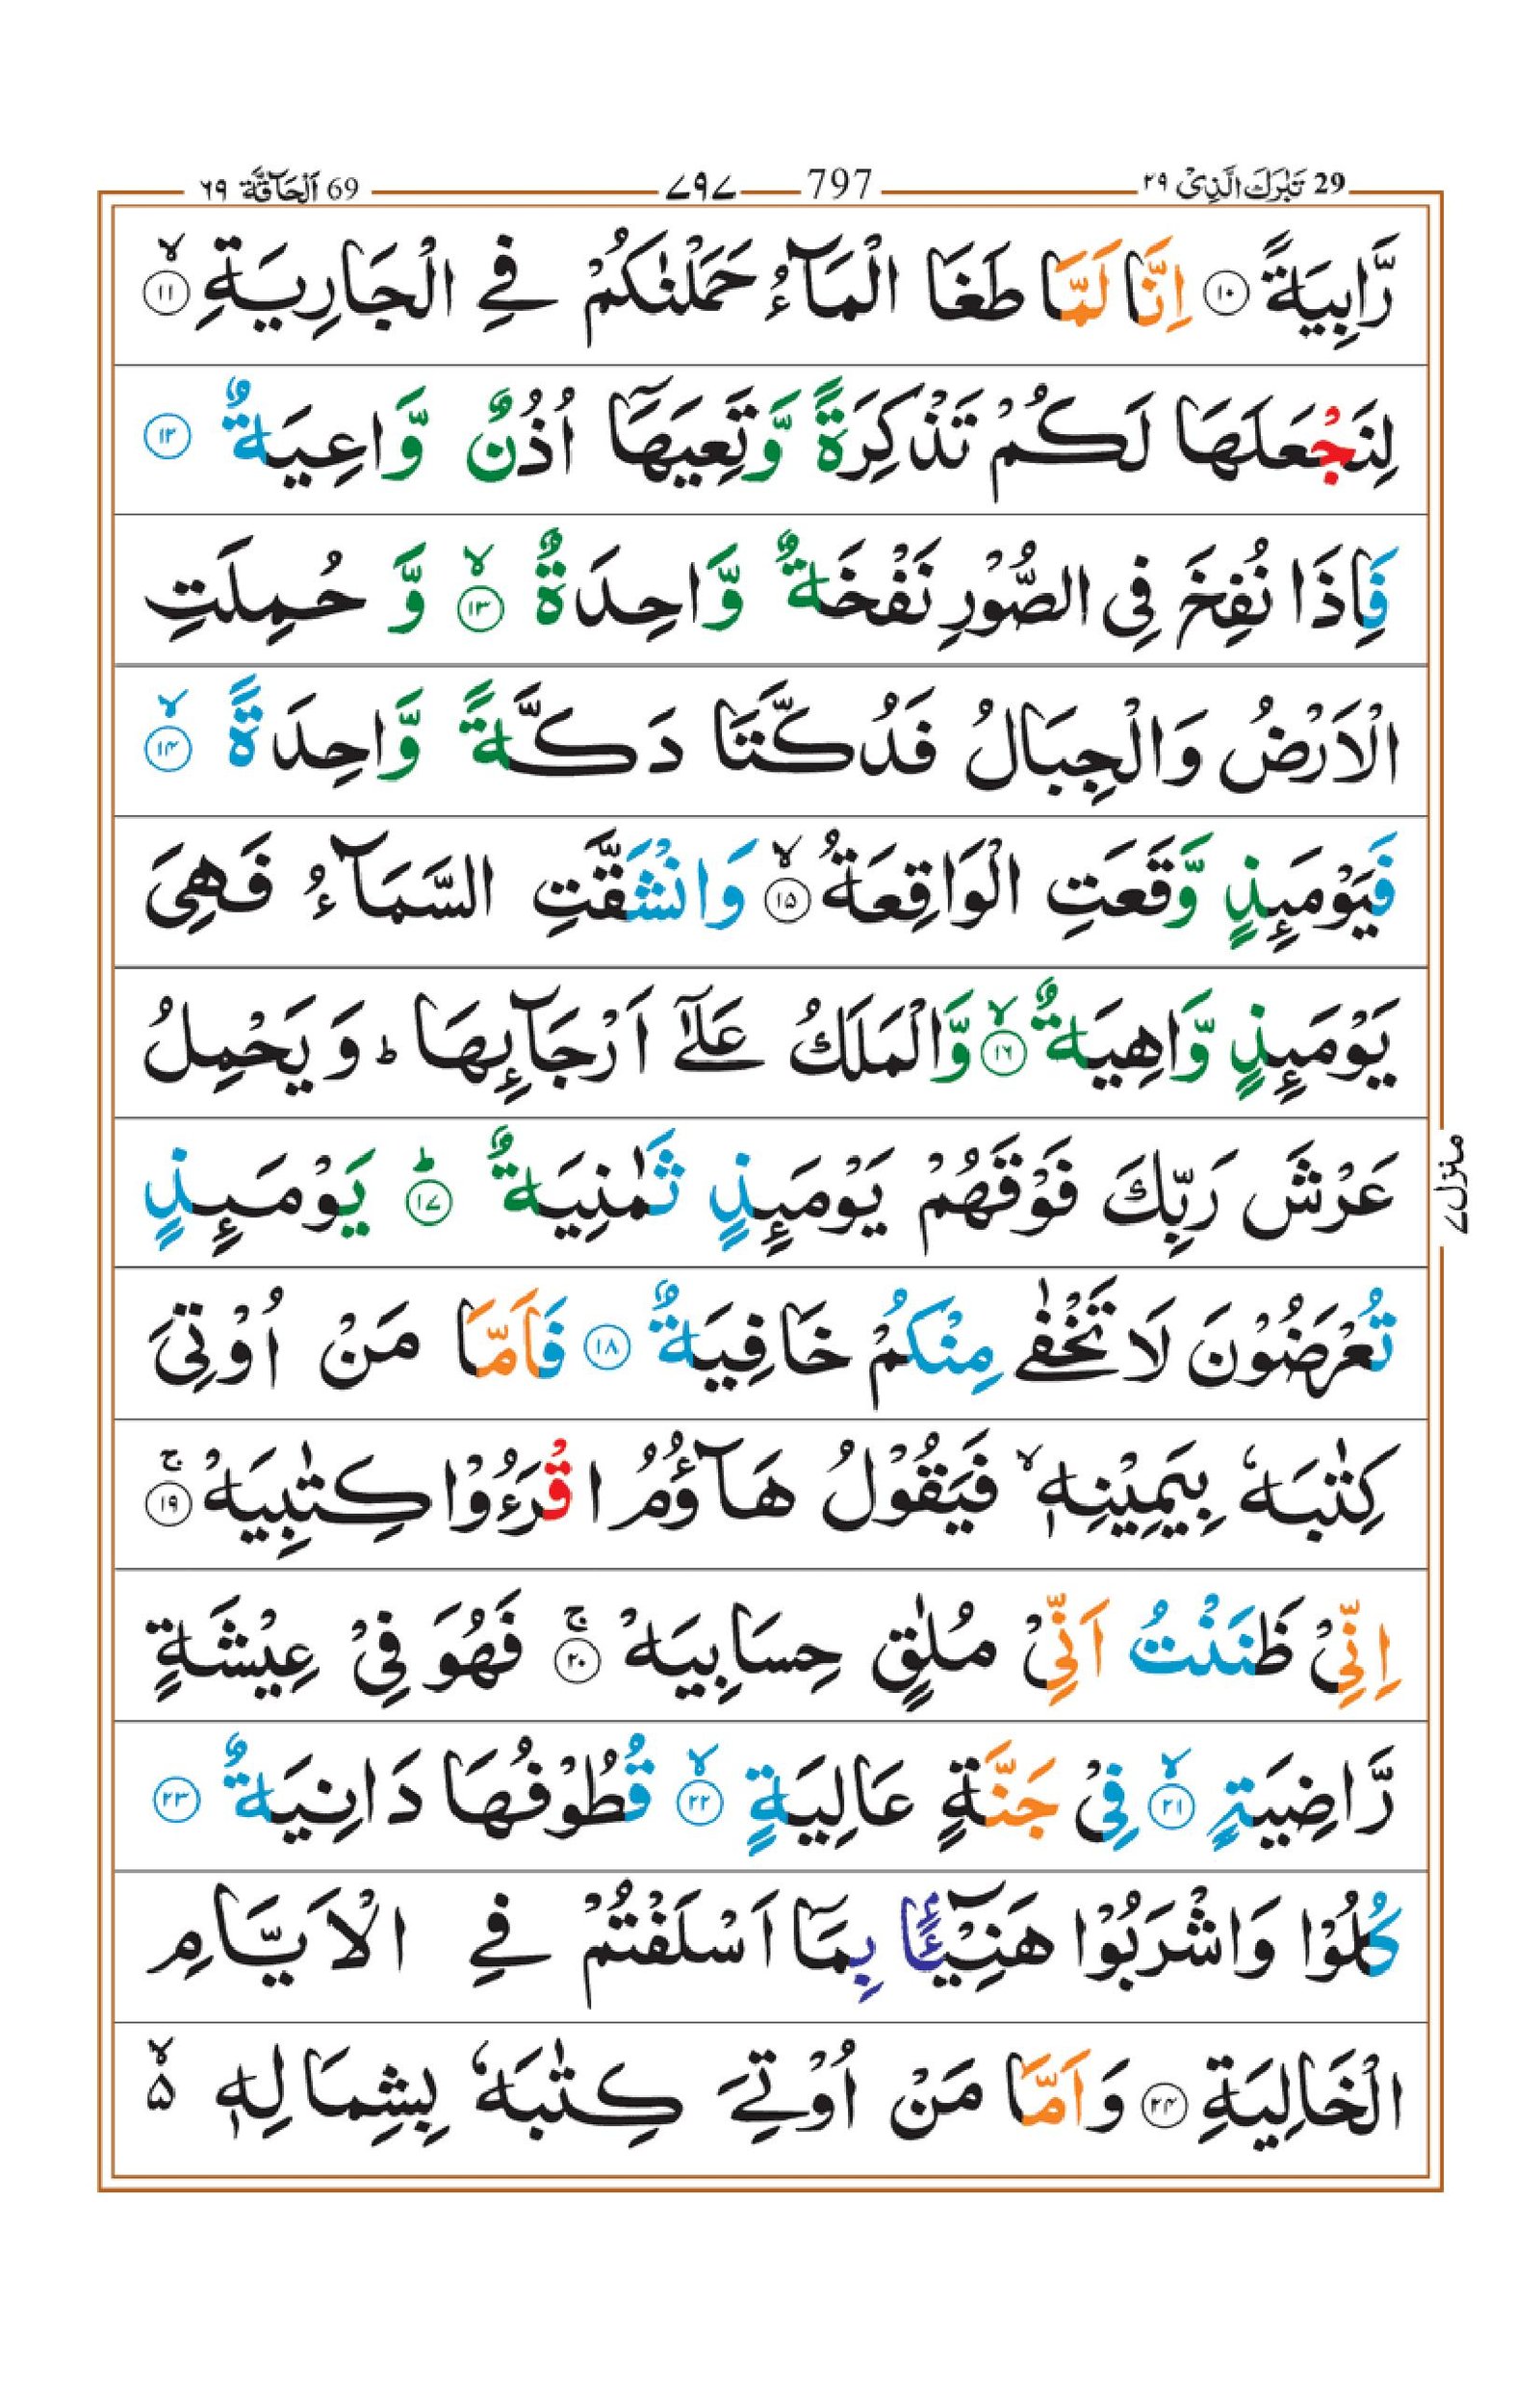 29 تَبٰرَكَ الَّذِىْ ٢٩ 797 ٧٩٧ 69 اَلْحَآقَّة ٦٩
رَّابِيَةً ۝۱۰ اِنَّا لَمَّا طَغَا الْمَآءُ حَمَلْنٰكُمْ فِي الْجَارِيَةِ ۝۱۱ۙ
لِنَجْعَلَهَا لَكُمْ تَذْكِرَةً وَّتَعِيَهَاۤ اُذُنٌ وَّاعِيَةٌ ۝۱۲
فَاِذَا نُفِخَ فِى الصُّوْرِ نَفْخَةٌ وَّاحِدَةٌ ۝۱۳ۙ وَّ حُمِلَتِ
الْاَرْضُ وَالْجِبَالُ فَدُكَّتَا دَكَّةً وَّاحِدَةً ۝۱۴ۙ
فَيَوْمَىِٕذٍ وَّقَعَتِ الْوَاقِعَةُ ۝۱۵ۙ وَانْشَقَّتِ السَّمَآءُ فَهِىَ
يَوْمَىِٕذٍ وَّاهِيَةٌ ۝۱۶ۙ وَّالْمَلَكُ عَلٰۤى اَرْجَآىِٕهَا ؕ وَ يَحْمِلُ
عَرْشَ رَبِّكَ فَوْقَهُمْ يَوْمَىِٕذٍ ثَمٰنِيَةٌ ۝۱۷ؕ يَوْمَىِٕذٍ
تُعْرَضُوْنَ لَا تَخْفٰى مِنْكُمْ خَافِيَةٌ ۝۱۸ فَاَمَّا مَنْ اُوْتِىَ
كِتٰبَهٗ بِيَمِيْنِهٖ ۙ فَيَقُوْلُ هَآؤُمُ اقْرَءُوْا كِتٰبِيَهْ ۝۱۹ۚ
اِنِّىْ ظَنَنْتُ اَنِّىْ مُلٰقٍ حِسَابِيَهْ ۝۲۰ۚ فَهُوَ فِىْ عِيْشَةٍ
رَّاضِيَةٍ ۝۲۱ۙ فِىْ جَنَّةٍ عَالِيَةٍ ۝۲۲ۙ قُطُوْفُهَا دَانِيَةٌ ۝۲۳
كُلُوْا وَاشْرَبُوْا هَنِيْٓـًٔۢا بِمَاۤ اَسْلَفْتُمْ فِي الْاَيَّامِ
الْخَالِيَةِ ۝۲۴ وَاَمَّا مَنْ اُوْتِيَ كِتٰبَهٗ بِشِمَالِهٖ ۵ۙ
منزل ٧